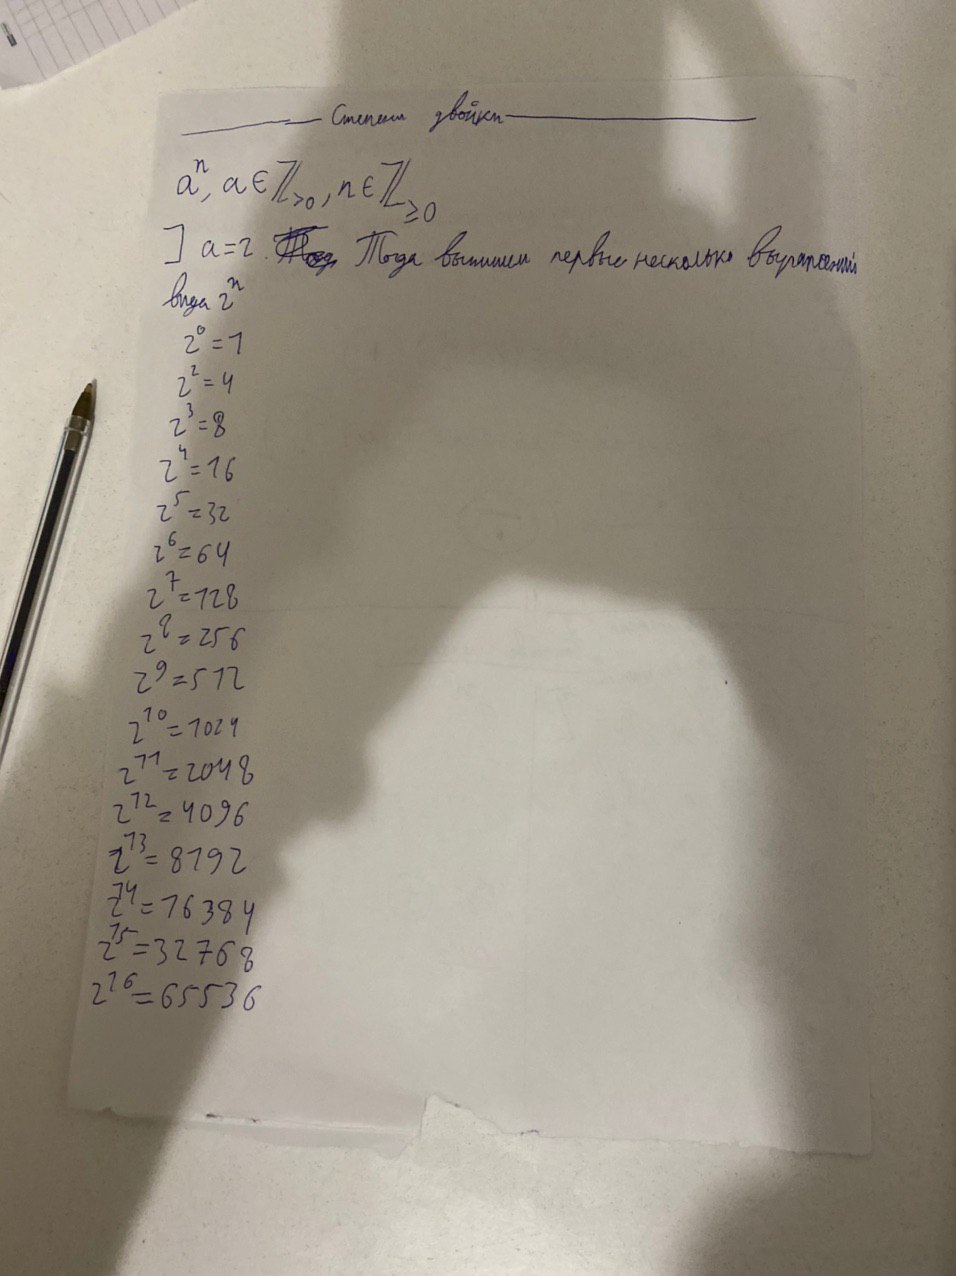 Степени двойки
aⁿ, a ∈ ℤ_{>0}, n ∈ ℤ_{≥0}
] a = 2. Тогда выпишем первые несколько выражений
вида 2ⁿ
2⁰ = 1
2² = 4
2³ = 8
2⁴ = 16
2⁵ = 32
2⁶ = 64
2⁷ = 128
2⁸ = 256
2⁹ = 512
2¹⁰ = 1024
2¹¹ = 2048
2¹² = 4096
2¹³ = 8192
2¹⁴ = 16384
2¹⁵ = 32768
2¹⁶ = 65536